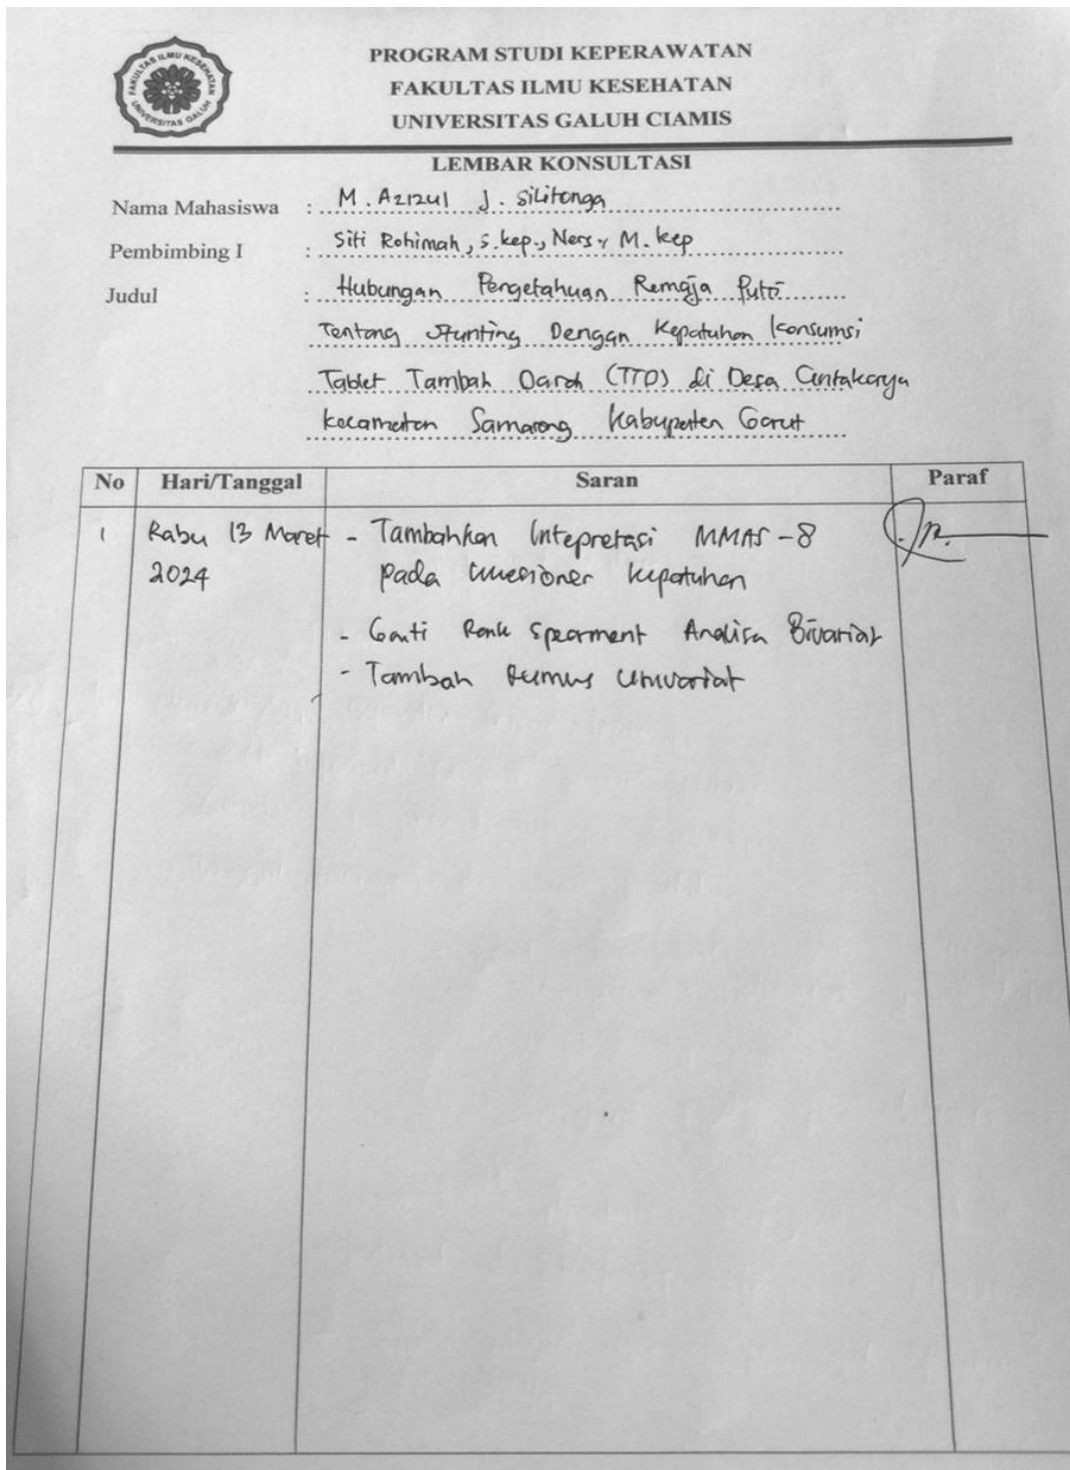 FAKULTAS ILMU KESEHATAN
UNIVERSITAS GALUH
PROGRAM STUDI KEPERAWATAN
FAKULTAS ILMU KESEHATAN
UNIVERSITAS GALUH CIAMIS
LEMBAR KONSULTASI
Nama Mahasiswa : M. Azizul J. Silitonga
Pembimbing I : Siti Rohimah, S.kep., Ners., M.kep
Judul : Hubungan Pengetahuan Remaja Putri
Tentang Stunting Dengan Kepatuhan Konsumsi
Tablet Tambah Darah (TTD) di Desa Cintakarya
Kecamatan Samarang Kabupaten Garut
No Hari/Tanggal Saran Paraf
1 Rabu 13 Maret - Tambahkan Intepretasi MMAS-8
2024 pada kuesioner kepatuhan
- Ganti Rank Spearment Analisa Bivariat
- Tambah Rumus Univariat